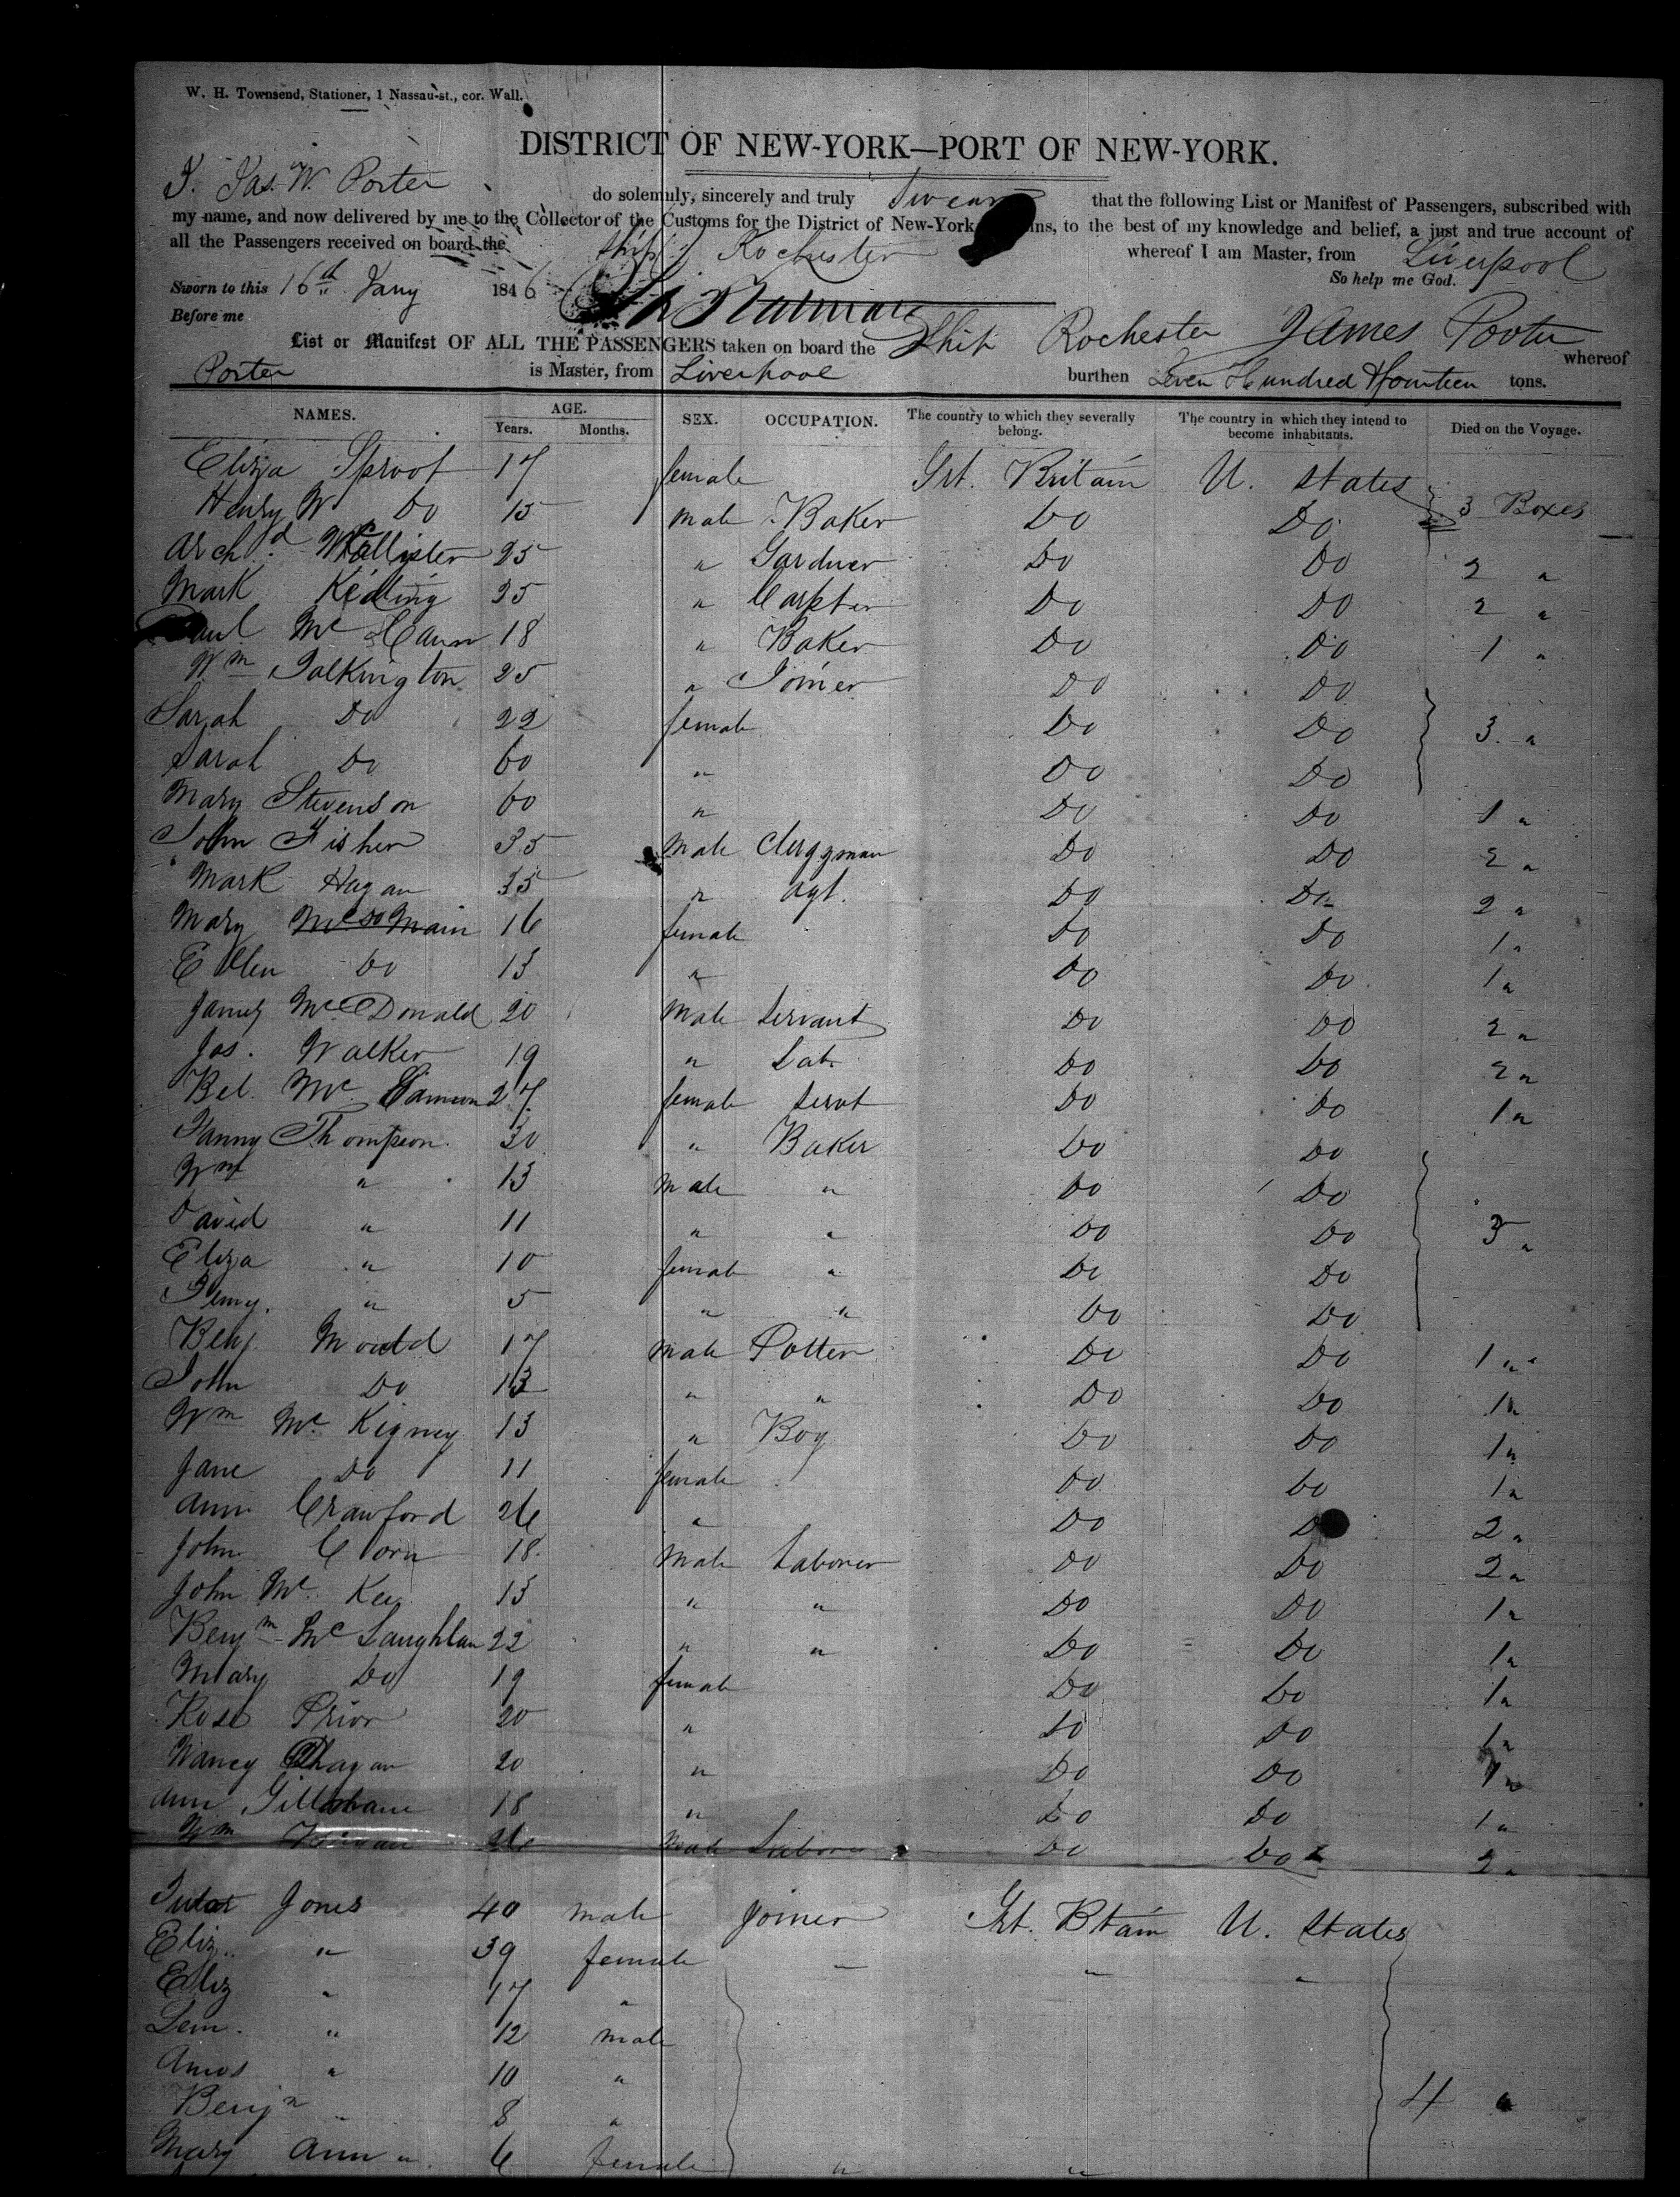 W. H. Townsend, Stationer, 1 Nassau-st., cor. Wall.
DISTRICT OF NEW-YORK—PORT OF NEW-YORK.
I. Jas. W. Porter do solemnly, sincerely and truly Swear that the following List or Manifest of Passengers, subscribed with
my name, and now delivered by me to the Collector of the Customs for the District of New-York to the best of my knowledge and belief, a just and true account of
all the Passengers received on board the Ship Rochester whereof I am Master, from Liverpool
Sworn to this 16th Jany 1846 So help me God.
Before me
List or Manifest OF ALL THE PASSENGERS taken on board the Ship Rochester James Porter whereof
Porter is Master, from Liverpool burthen Seven Hundred & fourteen tons.
NAMES. AGE. SEX. OCCUPATION. The country to which they severally belong. The country in which they intend to become inhabitants. Died on the Voyage.
Years. Months.
Eliza Sproot 17 female Grt. Britain U. States
Henry W Do 15 male Baker Do Do 3 Boxes
Archd. McAllister 25 " Gardner Do Do 2 "
Mark 25 " Carpter Do Do 2 "
Mc 18 " Baker Do Do 1 "
Wm Talkington 25 " Joiner Do Do
Sarah Do 22 female Do Do 3 "
Sarah Do 60 " Do Do
Mary Stevenson 60 " Do Do 1 "
John Fisher 35 male Clergyman Do Do 2 "
Mark Hagan 35 " agt. Do Do 2 "
Mary 16 female Do Do 1 "
Ellen Do 13 " Do Do 1 "
James McDonald 20 male Servant Do Do 2 "
Jas. Walker 19 " Lab. Do Do 2 "
Bel. Mc 27 female Servt Do Do 1 "
Fanny Thompson 30 " Baker Do Do
Wm " 13 male " Do Do
David " 11 " " Do Do 3 "
Eliza " 10 female " Do Do
" 5 " " Do Do
Benj Mould 17 male Potter Do Do 1 "
John Do 13 " " Do Do 1 "
Wm Mc Kigney 13 " Boy Do Do 1 "
Jane Do 11 female Do Do 1 "
Ann Crawford 26 " Do Do 2 "
John Corn 18 male Laborer Do Do 2 "
John Mc Kee 13 " " Do Do 1 "
Benjm Mc Laughlan 22 " " Do Do 1 "
Mary Do 19 female Do Do 1 "
Rose Prior 20 " Do Do 1 "
Nancy 20 " Do Do 1 "
Ann 18 " Do Do 1 "
Wm 26 male Laborer Do Do 2 "
Jones 40 male Joiner Grt. Btain U. States
Eliz. " 39 female " " "
Eliz " 17 "
Lem. " 12 male
Amos " 10 "
Benjn " 8 " 4 "
Mary Ann " 6 female " "